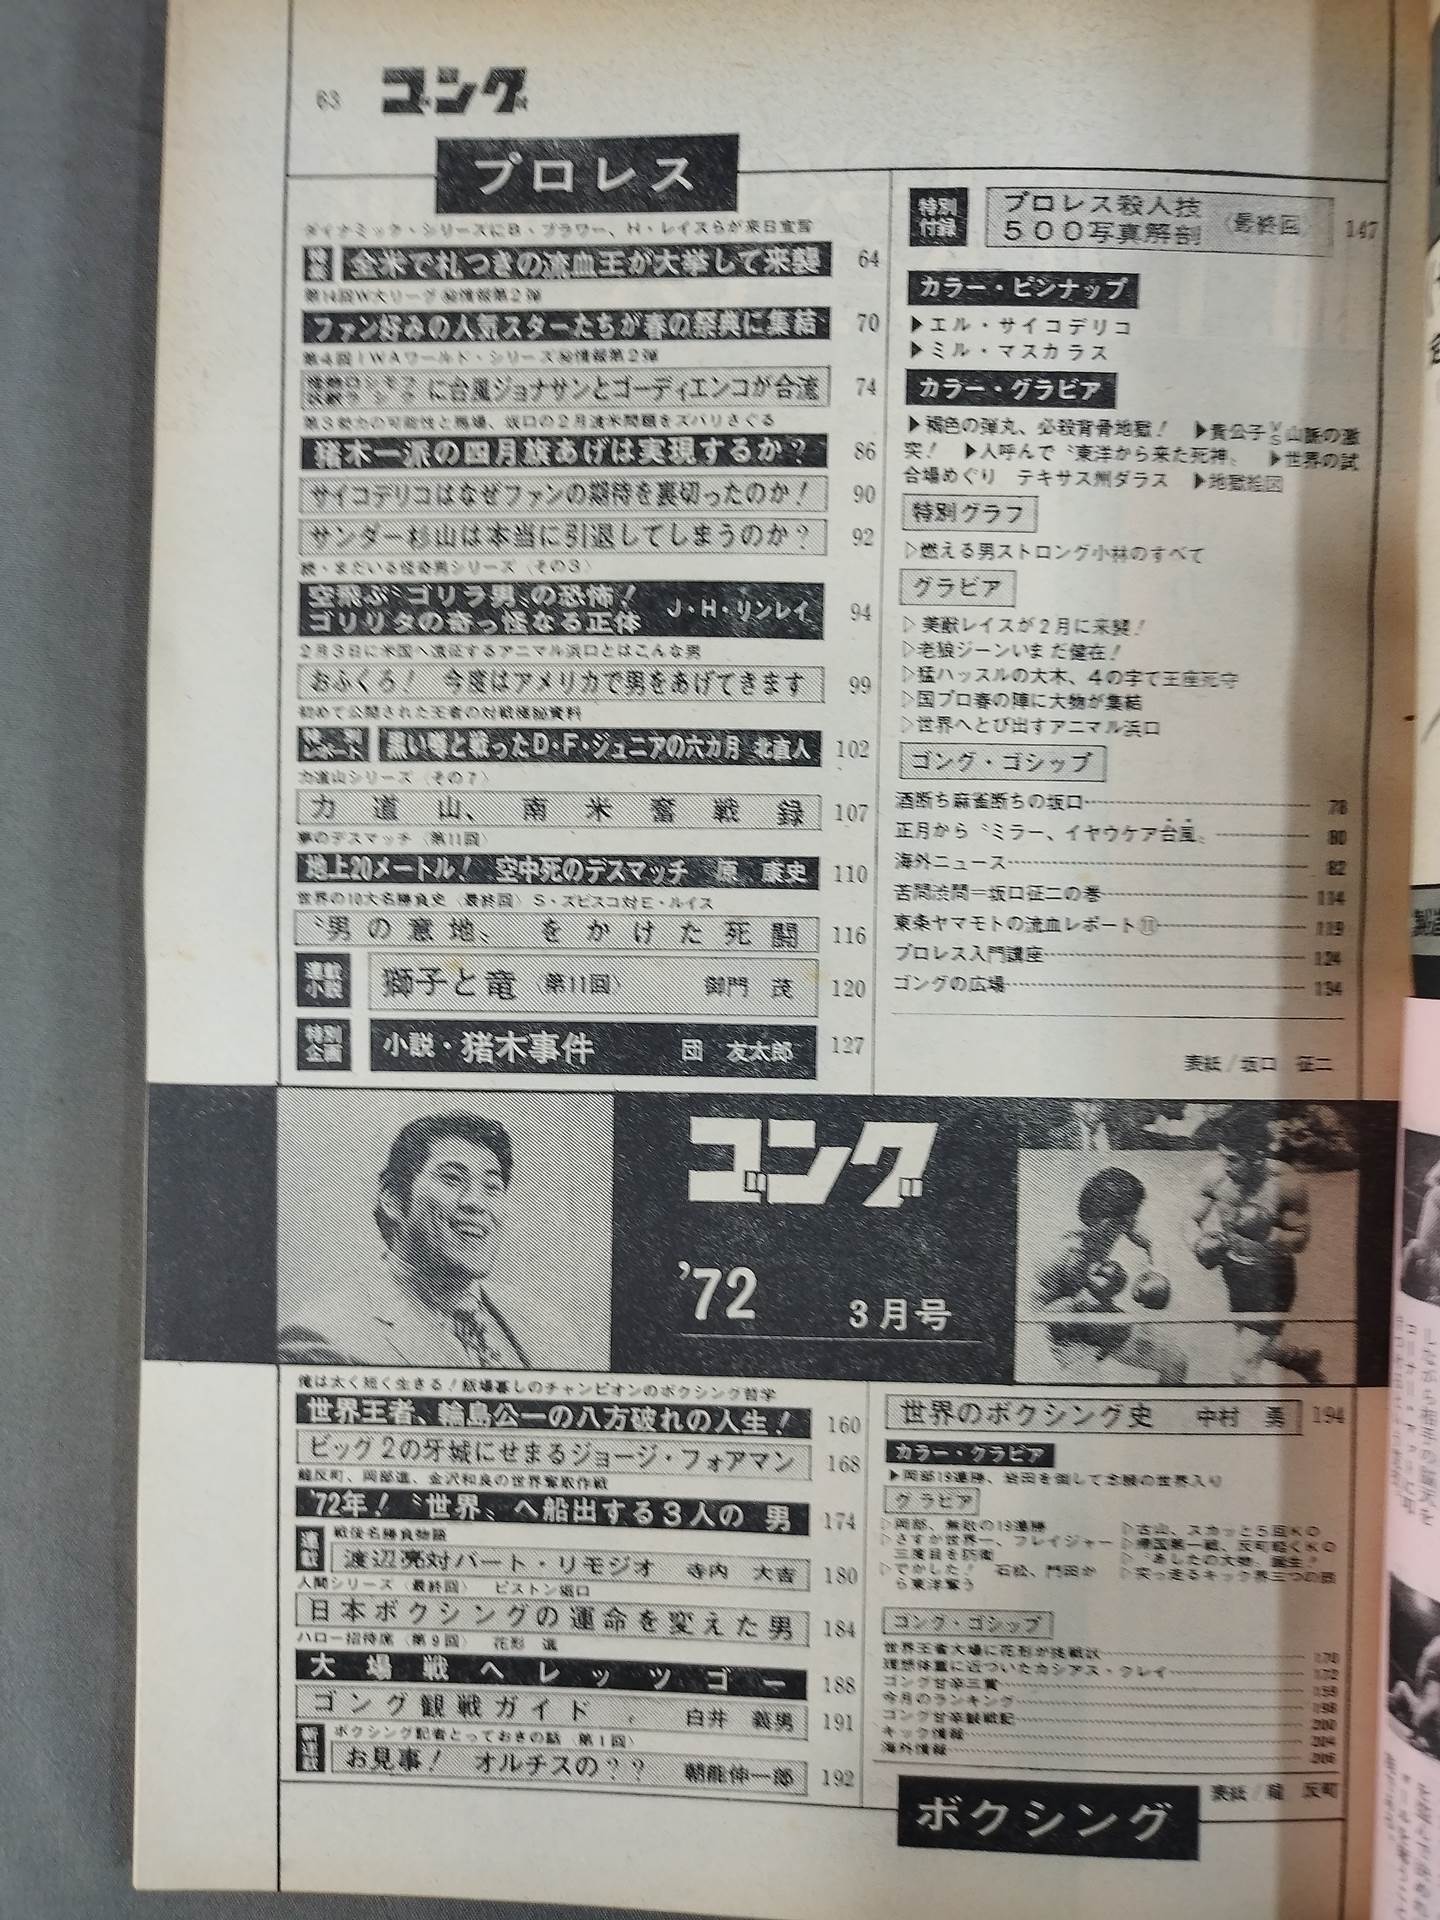 63 ゴング
プロレス
ダイナミック・シリーズにB・ブラワー、H・レイスらが来日宣言
全米で札つきの流血王が大挙して来襲 64
第14回W大リーグ㊙情報第2弾
ファン好みの人気スターたちが春の祭典に集結 70
第4回IWAワールド・シリーズ㊙情報第2弾
に台風ジョナサンとゴーディエンコが合流 74
第3勢力の可能性と馬場、坂口の2月渡米問題をズバリさぐる
猪木一派の四月旗あげは実現するか? 86
サイコデリコはなぜファンの期待を裏切ったのか! 90
サンダー杉山は本当に引退してしまうのか? 92
続・まだいる怪奇男シリーズ〈その3〉
空飛ぶ〝ゴリラ男〟の恐怖!
ゴリリタの奇っ怪なる正体 J・H・リンレイ 94
2月3日に米国へ遠征するアニマル浜口とはこんな男
おふくろ! 今度はアメリカで男をあげてきます 99
初めて公開された王者の対戦極秘資料
特別レポート 黒い噂と戦ったD・F・ジュニアの六カ月 北直人 102
力道山シリーズ〈その7〉
力道山、南米奮戦録 107
夢のデスマッチ〈第11回〉
地上20メートル! 空中死のデスマッチ 原 康史 110
世界の10大名勝負史〈最終回〉S・ズビスコ対E・ルイス
〝男の意地〟をかけた死闘 116
連載小説 獅子と竜〈第11回〉 御門 茂 120
特別企画 小説・猪木事件 団 友太郎 127
特別付録 プロレス殺人技
500写真解剖〈最終回〉 147
カラー・ピンナップ
▶エル・サイコデリコ
▶ミル・マスカラス
カラー・グラビア
▶褐色の弾丸、必殺背骨地獄! ▶貴公子VS山脈の激
突! ▶人呼んで〝東洋から来た死神〟 ▶世界の試
合場めぐり テキサス州ダラス ▶地獄絵図
特別グラフ
▷燃える男ストロング小林のすべて
グラビア
▷美獣レイスが2月に来襲!
▷老狼ジーンいまだ健在!
▷猛ハッスルの大木、4の字で王座死守
▷国プロ春の陣に大物が集結
▷世界へとび出すアニマル浜口
ゴング・ゴシップ
酒断ち麻雀断ちの坂口 78
正月から〝ミラー、イヤウケア台風〟 80
海外ニュース 82
苦問渋問=坂口征二の巻 114
東条ヤマモトの流血レポート⑪ 119
プロレス入門講座 124
ゴングの広場 134
表紙/坂口 征二
ゴング
'72 3月号
俺は太く短く生きる!飯場暮しのチャンピオンのボクシング哲学
世界王者、輪島公一の八方破れの人生! 160
ビッグ2の牙城にせまるジョージ・フォアマン 168
龍反町、岡部進、金沢和良の世界奪取作戦
'72年!〝世界〟へ船出する3人の男 174
戦後名勝負物語
連載 渡辺亮対バート・リモジオ 寺内 大吉 180
人間シリーズ〈最終回〉 ピストン堀口
日本ボクシングの運命を変えた男 184
ハロー招待席〈第9回〉 花形 進
大場戦へレッツゴー 188
ゴング観戦ガイド 白井 義男 191
ボクシング記者とっておきの話〈第1回〉
新連載 お見事! オルチスの?? 朝熊伸一郎 192
世界のボクシング史 中村 勇 194
カラー・グラビア
▶岡部19連勝、岩田を倒して念願の世界入り
グラビア
▷岡部、無敗の19連勝
▷さすが世界一、フレイジャー
三度目を防衛
▷でかした! 石松、門田か
ら東洋奪う
▷古山、スカッと5回KO
▷帰国第一戦、反町軽くKO
▷〝あしたの大物〟誕生!
▷突っ走るキック界三つの顔
ゴング・ゴシップ
世界王者大場に花形が挑戦状 170
理想体重に近づいたカシアス・クレイ 172
ゴング甘辛三賞 199
今月のランキング 198
ゴング甘辛観戦記 200
キック情報 204
海外情報 206
表紙/龍 反町
ボクシング